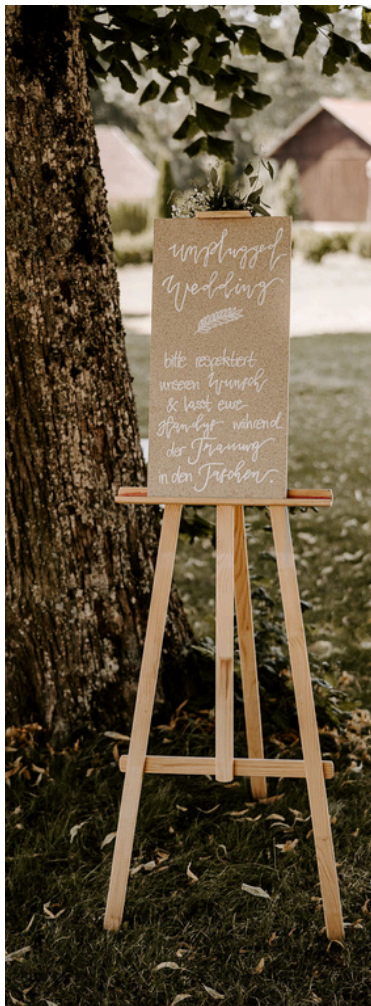 unplugged
Wedding
bitte respektiert
unseren Wunsch
& lasst eure
Handys während
der Trauung
in den Taschen.